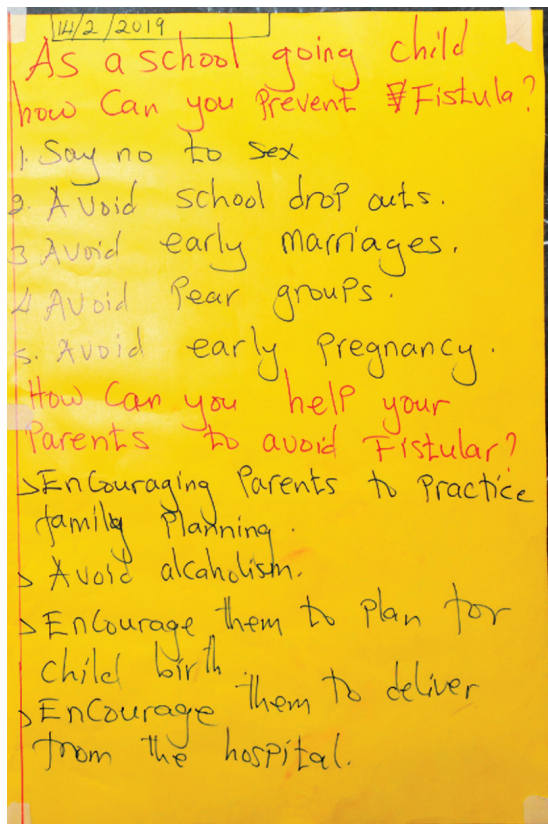 14/2/2019
As a school going child
how Can you Prevent Fistula?
1. Say no to sex
2. Avoid school drop outs.
3 Avoid early marriages.
4 Avoid Pear groups.
5. Avoid early Pregnancy.
How Can you help your
Parents to avoid Fistular?
> Encouraging Parents to Practice
family Planning.
> Avoid alcaholism.
> Encourage them to Plan for
Child birth.
> Encourage them to deliver
from the hospital.